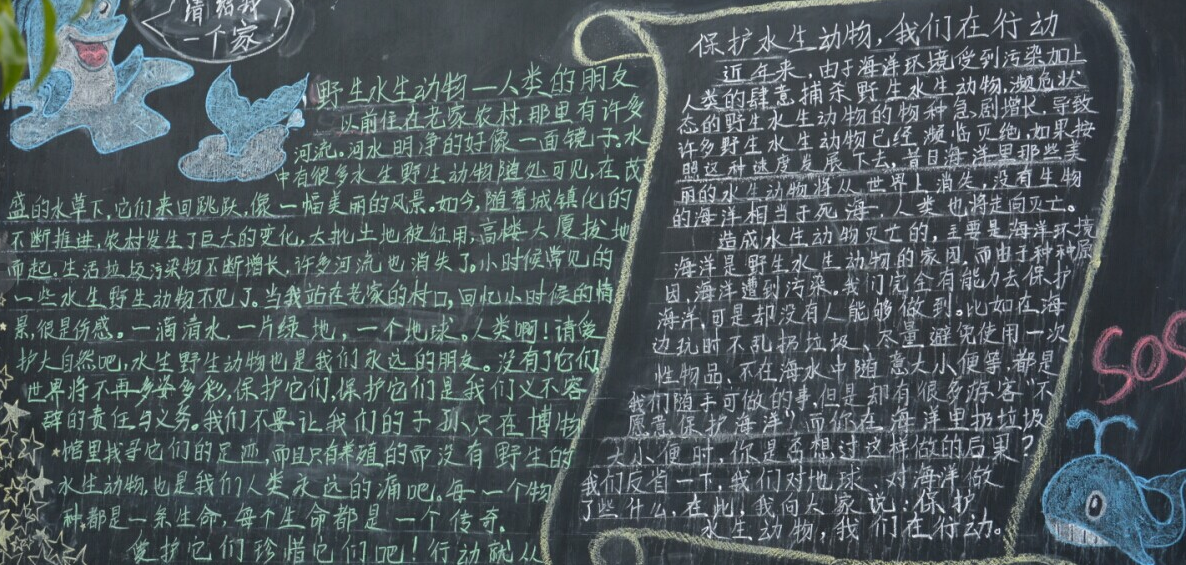 请给我
一个家!
野生水生动物—人类的朋友
以前住在老家农村,那里有许多
河流。河水明净的好像一面镜子,水
中有很多水生野生动物随处可见,在茂
盛的水草下,它们来回跳跃,像一幅美丽的风景。如今,随着城镇化的
不断推进,农村发生了巨大的变化,大批土地被征用,高楼大厦拔地
而起,生活垃圾污染物不断增长,许多河流也消失了。小时候常见的
一些水生野生动物不见了。当我站在老家的村口,回忆小时候的情
景,很是伤感。一滴清水,一片绿地,一个地球。人类啊!请爱
护大自然吧,水生野生动物也是我们永远的朋友。没有了它们,
世界将不再多姿多彩,保护它们,保护它们是我们义不容
辞的责任与义务。我们不要让我们的子孙,只在博物
馆里找寻它们的足迹,而且只有养殖的而没有野生的
水生动物,也是我们人类永远的痛吧。每一个物
种,都是一条生命,每个生命都是一个传奇,
爱护它们珍惜它们吧!行动就从
保护水生动物,我们在行动
近年来,由于海洋环境受到污染加上
人类的肆意捕杀野生水生动物,濒危状
态的野生水生动物的物种急剧增长,导致
许多野生水生动物已经濒临灭绝,如果按
照这种速度发展下去,昔日海洋里那些美
丽的水生动物将从世界上消失,没有生物
的海洋相当于死海,人类也将走向灭亡。
造成水生动物灭亡的,主要是海洋环境
海洋是野生水生动物的家园,而由于种种原
因,海洋遭到污染。我们完全有能力去保护
海洋,可是却没有人能够做到。比如在海
边玩时不乱扔垃圾、尽量避免使用一次
性物品、不在海水中随意大小便等,都是
我们随手可做的事,但是却有很多游客“不
愿意保护海洋”而你在海洋里扔垃圾
大小便时,你是否想过这样做的后果?
我们反省一下,我们对地球、对海洋做
了些什么,在此,我向大家说:保护
水生动物,我们在行动。
SOS